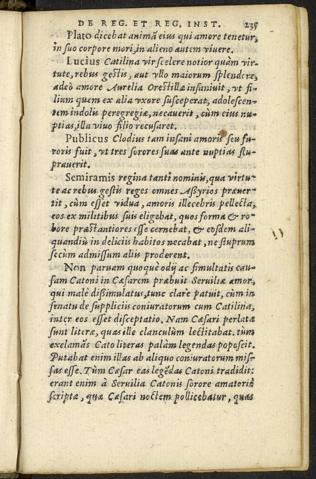 DE REG. ET REG. INST. 235
Plato dicebat animã eius qui amore tenetur,
in suo corpore mori, in alieno autem viuere.
Lucius Catilina vir scelere notior quàm vir-
tute, rebus gestis, aut vllo maiorum splendore,
adeò amore Aurelia Orestilla insaniuit, vt fi-
lium quem ex alia vxore susceperat, adolescen-
tem indolis peregregia, necauerit, cùm eius nu-
ptias, illa viuo filio recusaret.
Publicus Clodius tam insani amoris seu fu-
roris fuit, vt tres sorores suas ante nuptias stu-
prauerit.
Semiramis regina tanti nominis, qua virtu-
te ac rebus gestis reges omnes Assyrios præuer-
tit, cùm esset vidua, amoris illecebris pellecta,
eos ex militibus suis eligebat, quos forma & ro-
bore præstantiores esse cernebat, & eosdem ali-
quandiu in deliciis habitos necabat, ne stuprum
secum admissum aliis proderent.
Non paruam quoque odij ac simultatis cau-
sam Catoni in Cæsarem præbuit Seruiliæ amor,
qui malè dissimulatus, tunc clarè patuit, cùm in
senatu de suppliciis coniuratorum cum Catilina,
inter eos esset disceptatio. Nam Cæsari perlatæ
sunt literæ, quas ille clanculùm lectitabat. tùm
exclamãs Cato literas palàm legendas poposcit.
Putabat enim illas ab aliquo coniuratorum mis-
sas esse. Tùm Cæsar eas legẽdas Catoni tradidit:
erant enim à Seruilia Catonis sorore amatoriè
scriptæ, quæ Cæsari noctem pollicebatur, quas